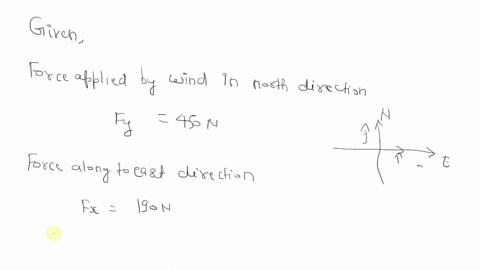 Given,
Force applied by wind in north direction
Fy = 450 N
N
ĵ
E
Force along to east direction
Fx = 190 N